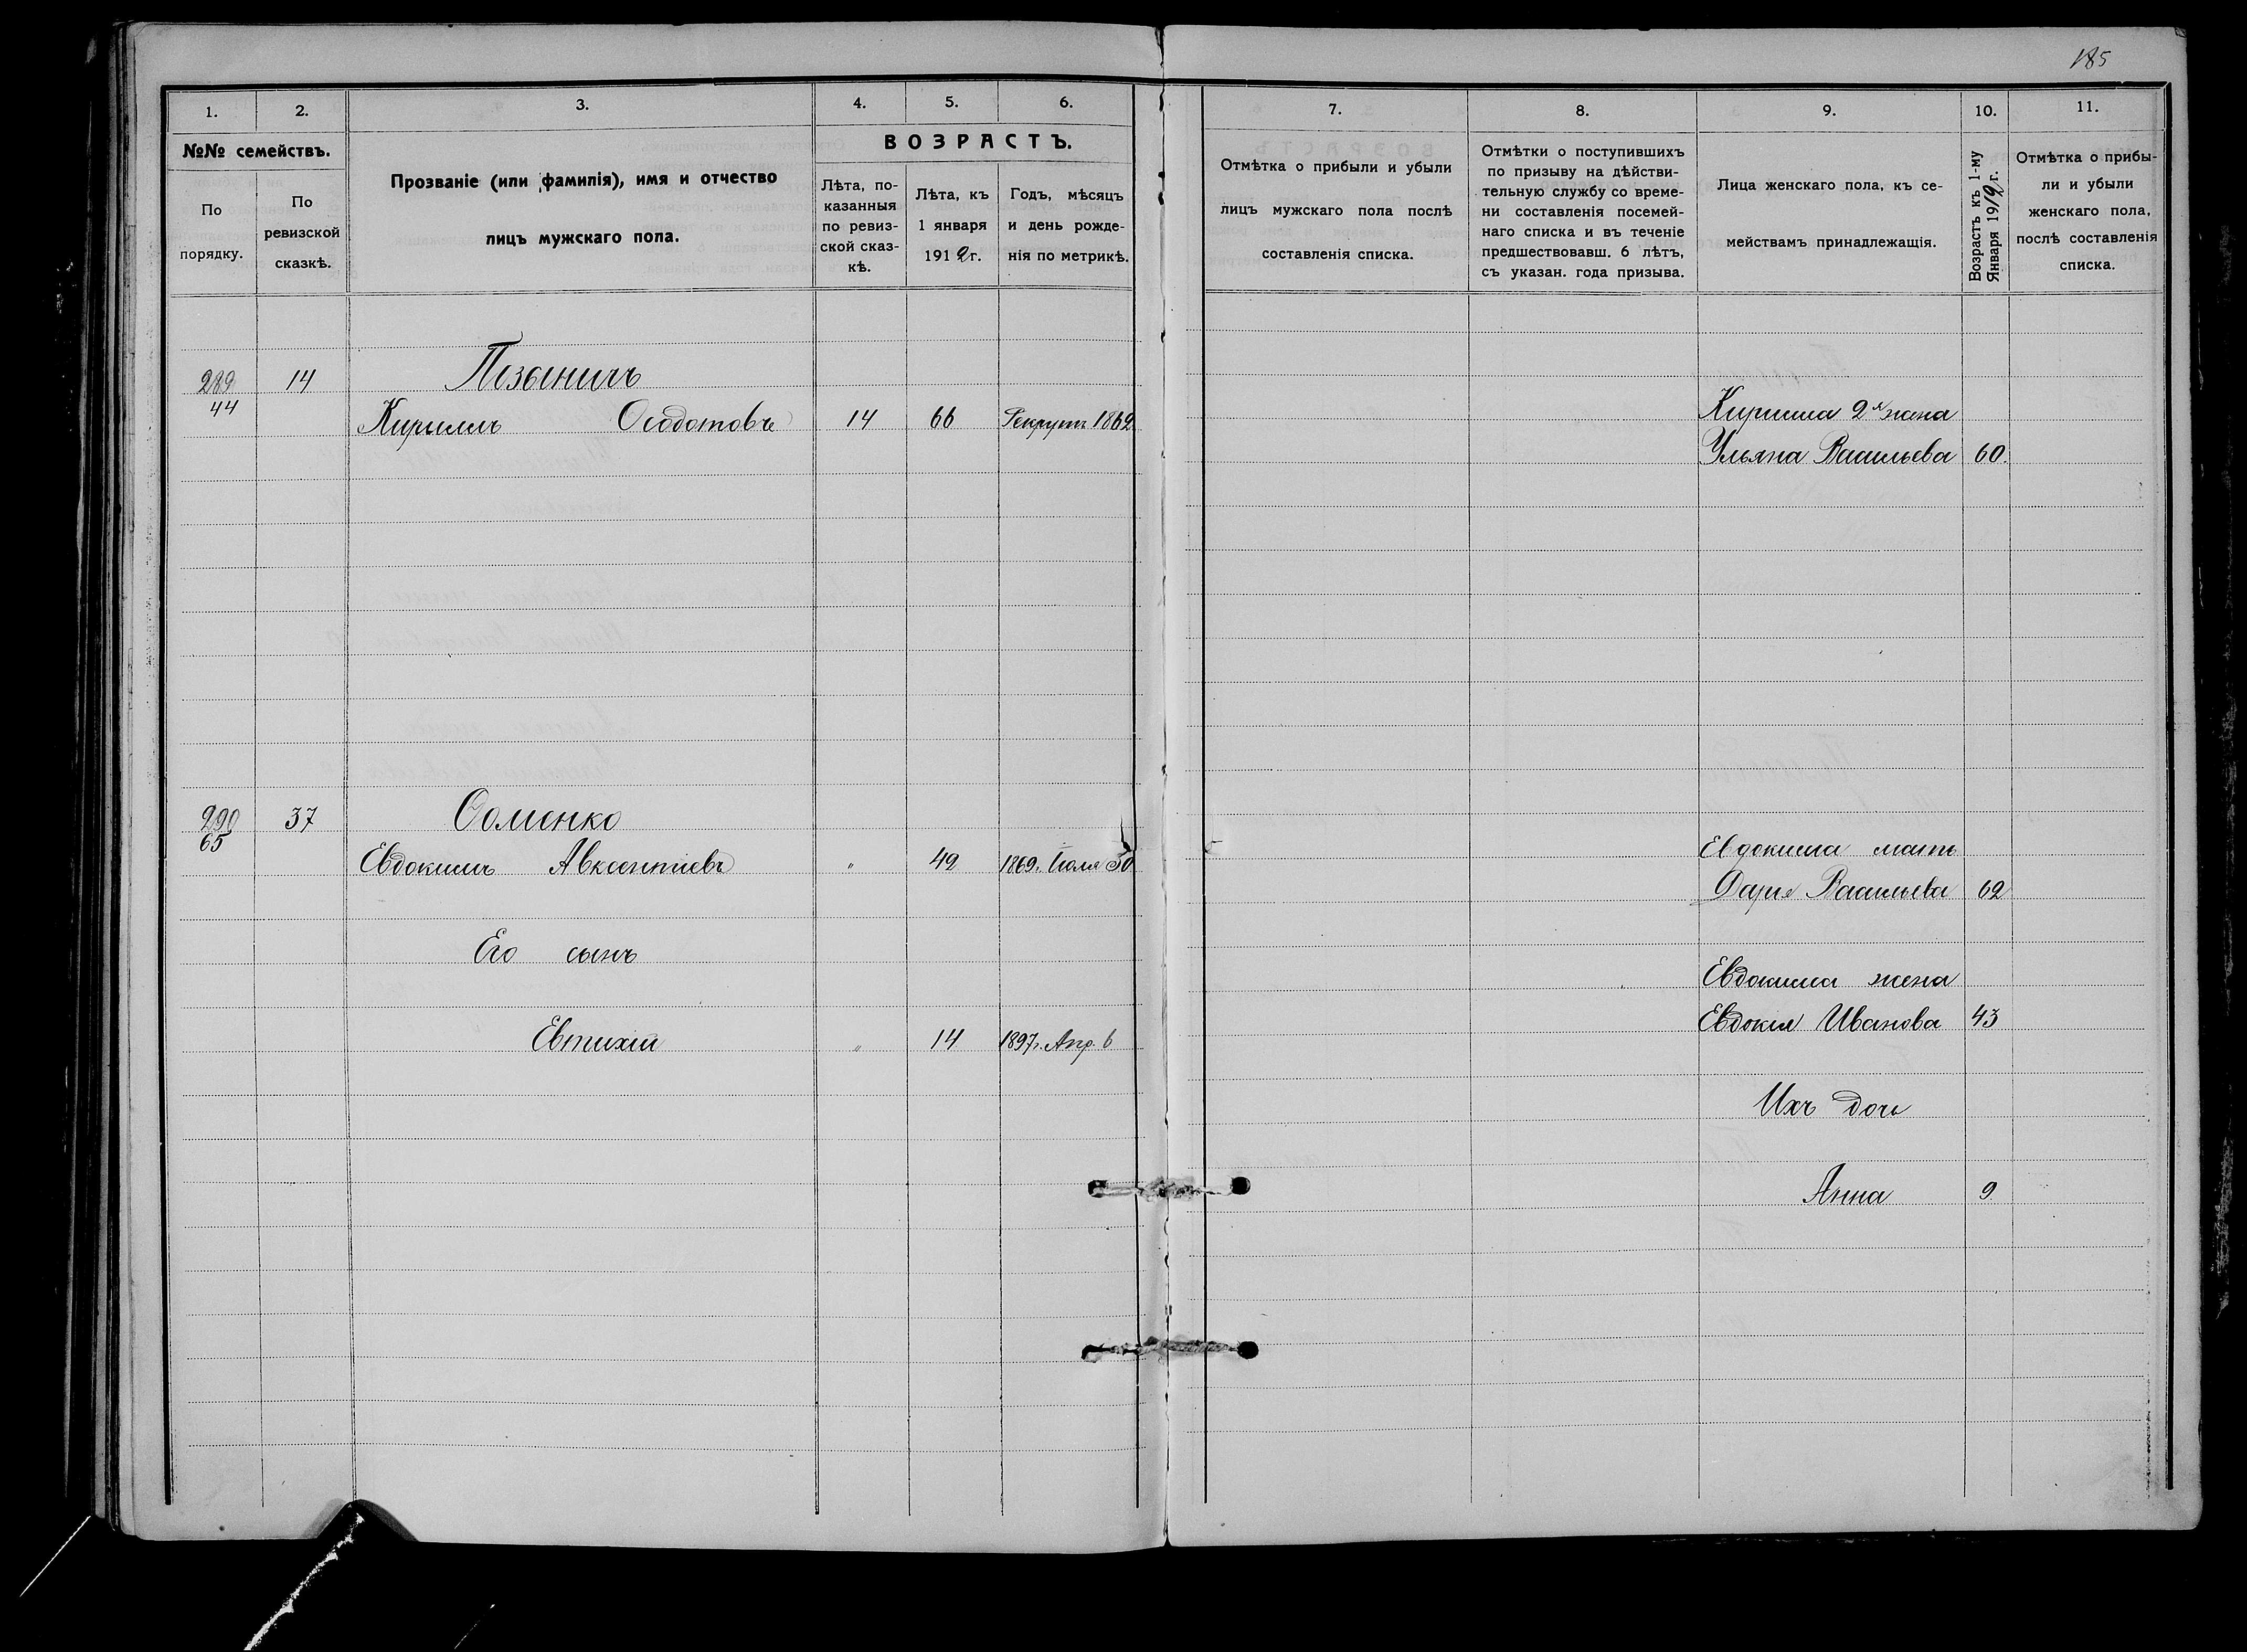 185
1. 2. 3. 4. 5. 6.
№№ семействъ.
По порядку.
По ревизской сказкѣ.
Прозваніе (или фамилія), имя и отчество
лицъ мужскаго пола.
ВОЗРАСТЪ.
Лѣта, по-
казанныя
по ревиз-
ской сказ-
кѣ.
Лѣта, къ
1 января
1912 г.
Годъ, мѣсяцъ
и день рожде-
нія по метрикѣ.
289 14
44
Кириллъ Ѳеодотовъ 14 66 Рекрутъ 1862
290 37 Ѳоменко
65
Евдокимъ Авксентіевъ " 42 1869. Іюля 30
Его сынъ
Евтихій " 14 1897г. Апр. 6
7. 8. 9. 10. 11.
Отмѣтка о прибыли и убыли
лицъ мужскаго пола послѣ
составленія списка.
Отмѣтки о поступившихъ
по призыву на дѣйстви-
тельную службу со време-
ни составленія посемей-
наго списка и въ теченіе
предшествовавш. 6 лѣтъ,
съ указан. года призыва.
Лица женскаго пола, къ се-
мействамъ принадлежащія.
Возрастъ къ 1-му
Января 1912 г.
Отмѣтка о прибы-
ли и убыли
женскаго пола,
послѣ составленія
списка.
Кирилла 2я жена
Ульяна Васильева 60.
Евдокима мать
Дарья Васильева 62
Евдокима жена
Евдокія Иванова 43
Ихъ дочь
Анна 9